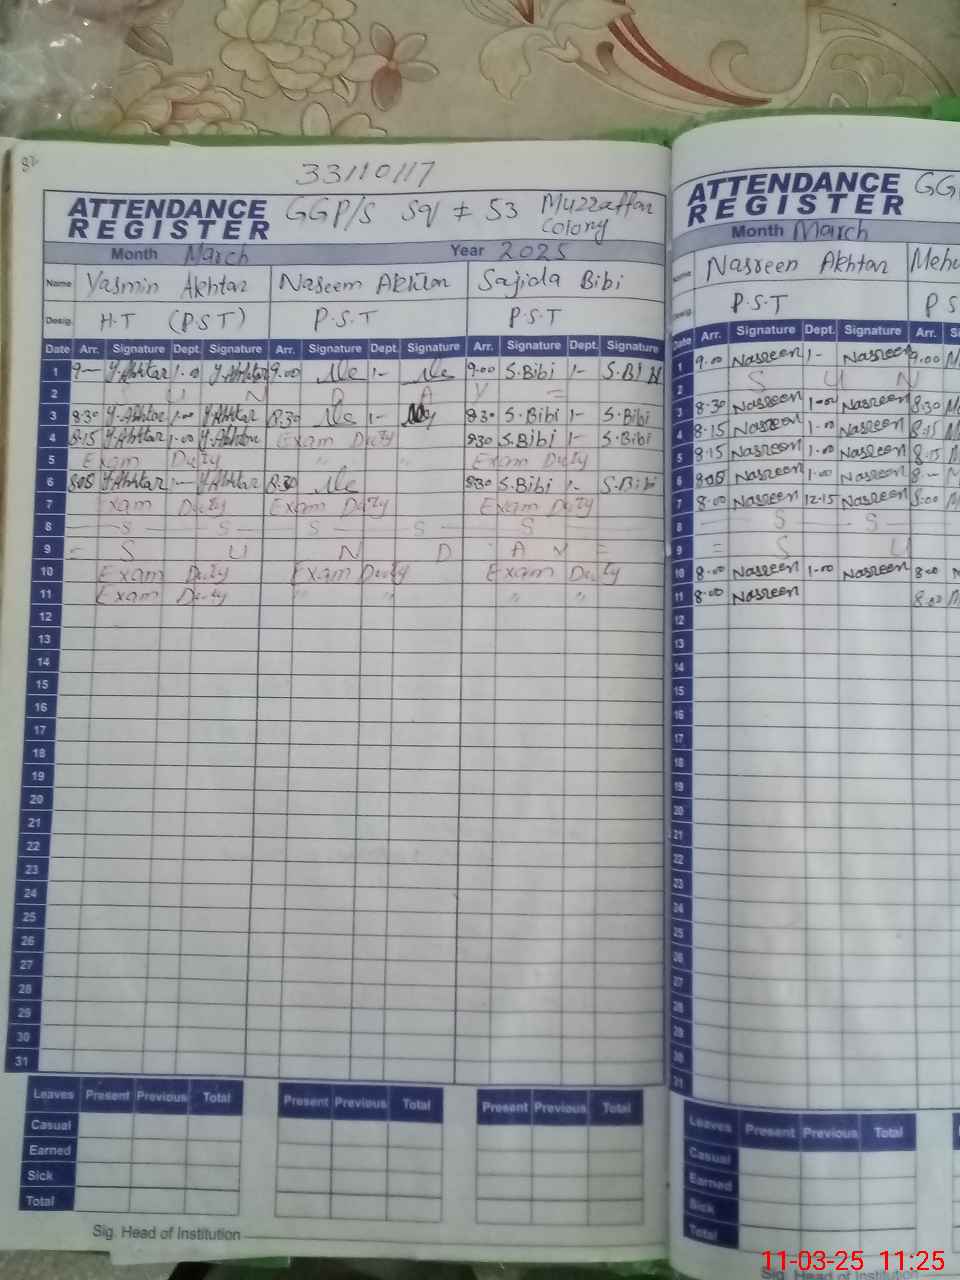 33110117
ATTENDANCE REGISTER GGP/S Sq # 53 Muzzaffar Colony
Month March Year 2025
Name Yasmin Akhtar Naseem Akhtar Sajida Bibi
Desig. H.T (P.S.T) P.S.T P.S.T
Date Arr. Signature Dept. Signature Arr. Signature Dept. Signature Arr. Signature Dept. Signature
1 9— Y.Akhtar 1.00 Y.Akhtar 9.00 1- 9.00 S.Bibi 1- S.Bibi
2 S U N D A Y =
3 8.30 Y.Akhtar 1.00 Y.Akhtar 8.30 1- 8.30 S.Bibi 1- S.Bibi
4 8.15 Y.Akhtar 1.00 Y.Akhtar Exam Duty 8.30 S.Bibi 1- S.Bibi
5 Exam Duty " " Exam Duty
6 8.05 Y.Akhtar 1— Y.Akhtar 8.30 8.30 S.Bibi 1- S.Bibi
7 Exam Duty Exam Duty Exam Duty
8 S S S S S
9 = S U N D A Y =
10 Exam Duty Exam Duty Exam Duty
11 Exam Duty " " " "
12
13
14
15
16
17
18
19
20
21
22
23
24
25
26
27
28
29
30
31
Leaves Present Previous Total Present Previous Total Present Previous Total
Casual
Earned
Sick
Total
Sig. Head of Institution
ATTENDANCE REGISTER GG
Month March
Name Nasreen Akhtar Meh
P.S.T P S
Date Arr. Signature Dept. Signature Arr. S
1 9.00 Nasreen 1- Nasreen 9.00 M
2 S U N
3 8.30 Nasreen 1.00 Nasreen 8.30 M
4 8.15 Nasreen 1.00 Nasreen 8.15 M
5 8.15 Nasreen 1.00 Nasreen 8.15 M
6 8.05 Nasreen 1.00 Nasreen 8— M
7 8.00 Nasreen 12.15 Nasreen 8.00 M
8 S S
9 = S U
10 8.00 Nasreen 1.00 Nasreen 8.00
11 8.00 Nasreen 8.00 M
12
13
14
15
16
17
18
19
20
21
22
23
24
25
26
27
28
29
30
31
Leaves Present Previous Total
Casual
Earned
Sick
Total
Sig. Head of Institution
11-03-25 11:25